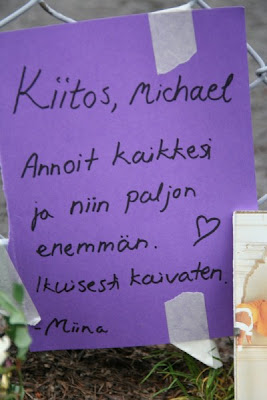 Kiitos, Michael
Annoit kaikkesi
ja niin paljon
enemmän.
Ikuisesti kaivaten.
- Miina